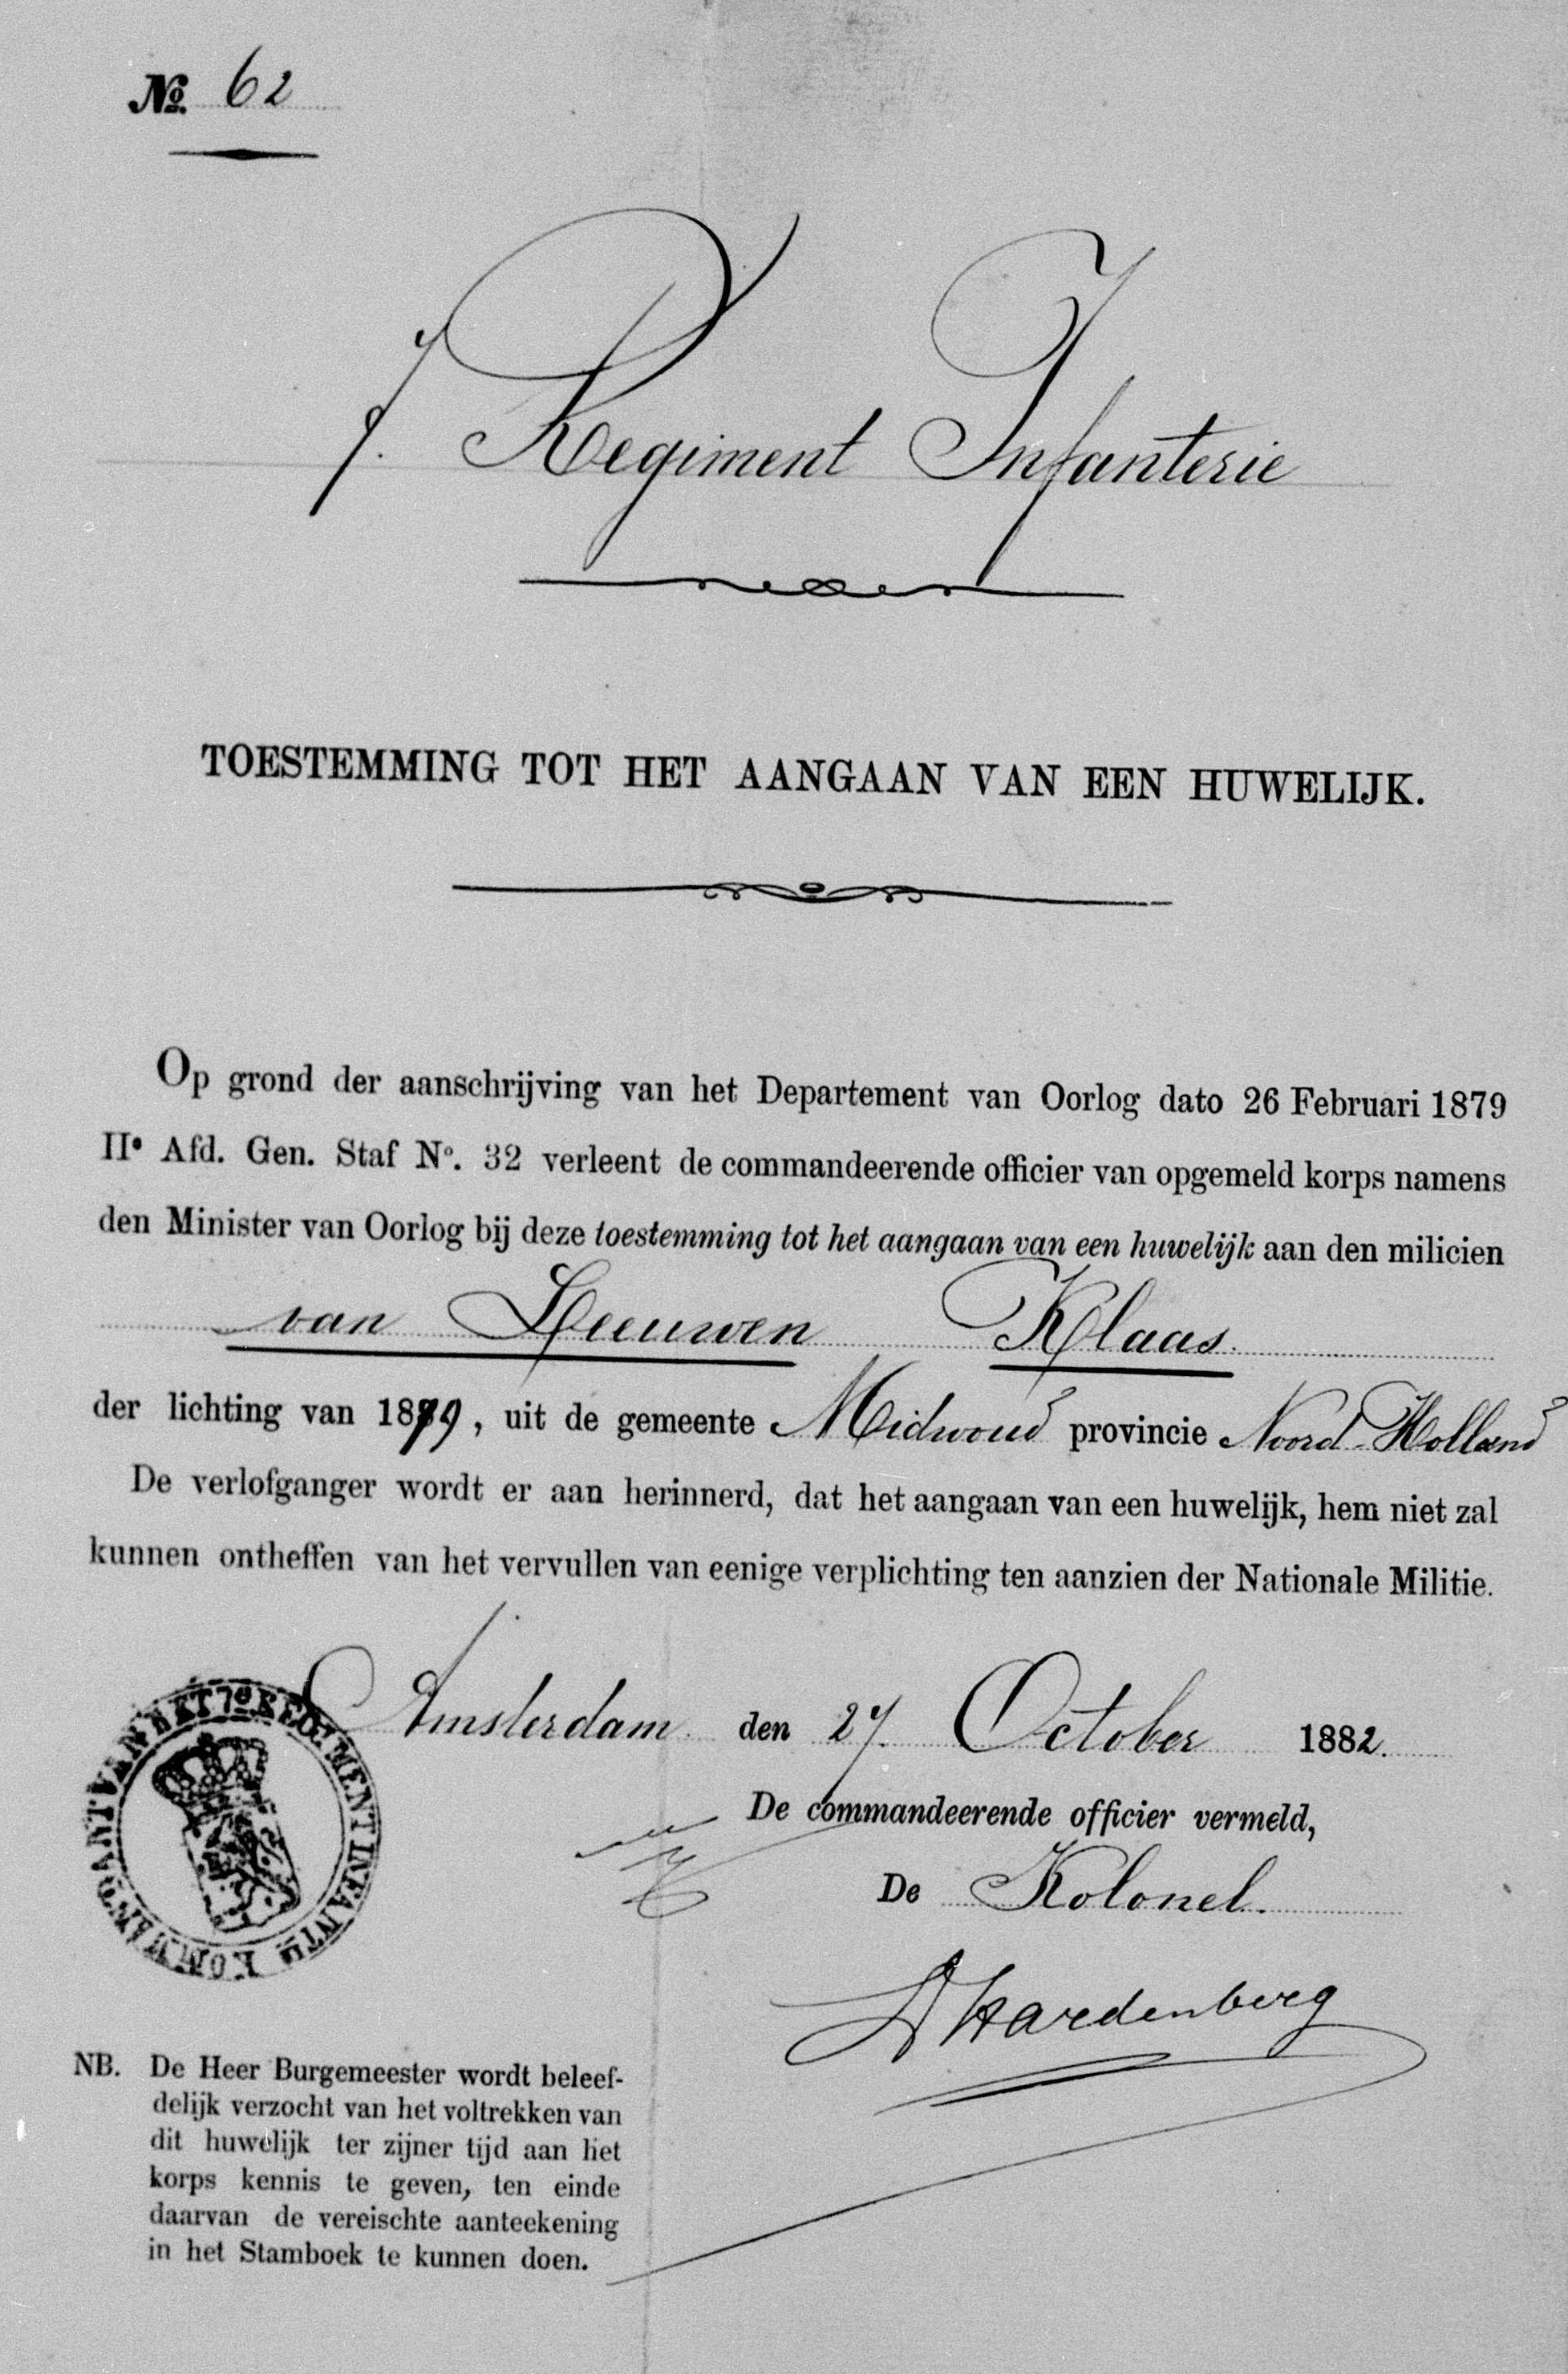 No. 62
7. Regiment Infanterie
TOESTEMMING TOT HET AANGAAN VAN EEN HUWELIJK.
Op grond der aanschrijving van het Departement van Oorlog dato 26 Februari 1879
IIe Afd. Gen. Staf No. 32 verleent de commandeerende officier van opgemeld korps namens
den Minister van Oorlog bij deze toestemming tot het aangaan van een huwelijk aan den milicien
van Leeuwen Klaas.
der lichting van 1879, uit de gemeente Midwoud provincie Noord-Holland
De verlofganger wordt er aan herinnerd, dat het aangaan van een huwelijk, hem niet zal
kunnen ontheffen van het vervullen van eenige verplichting ten aanzien der Nationale Militie.
Amsterdam den 27. October 1882.
KOMMANDANT VAN HET 7e REGIMENT INFANTIE
De commandeerende officier vermeld,
De Kolonel.
Hardenberg
NB. De Heer Burgemeester wordt beleef-
delijk verzocht van het voltrekken van
dit huwelijk ter zijner tijd aan het
korps kennis te geven, ten einde
daarvan de vereischte aanteekening
in het Stamboek te kunnen doen.